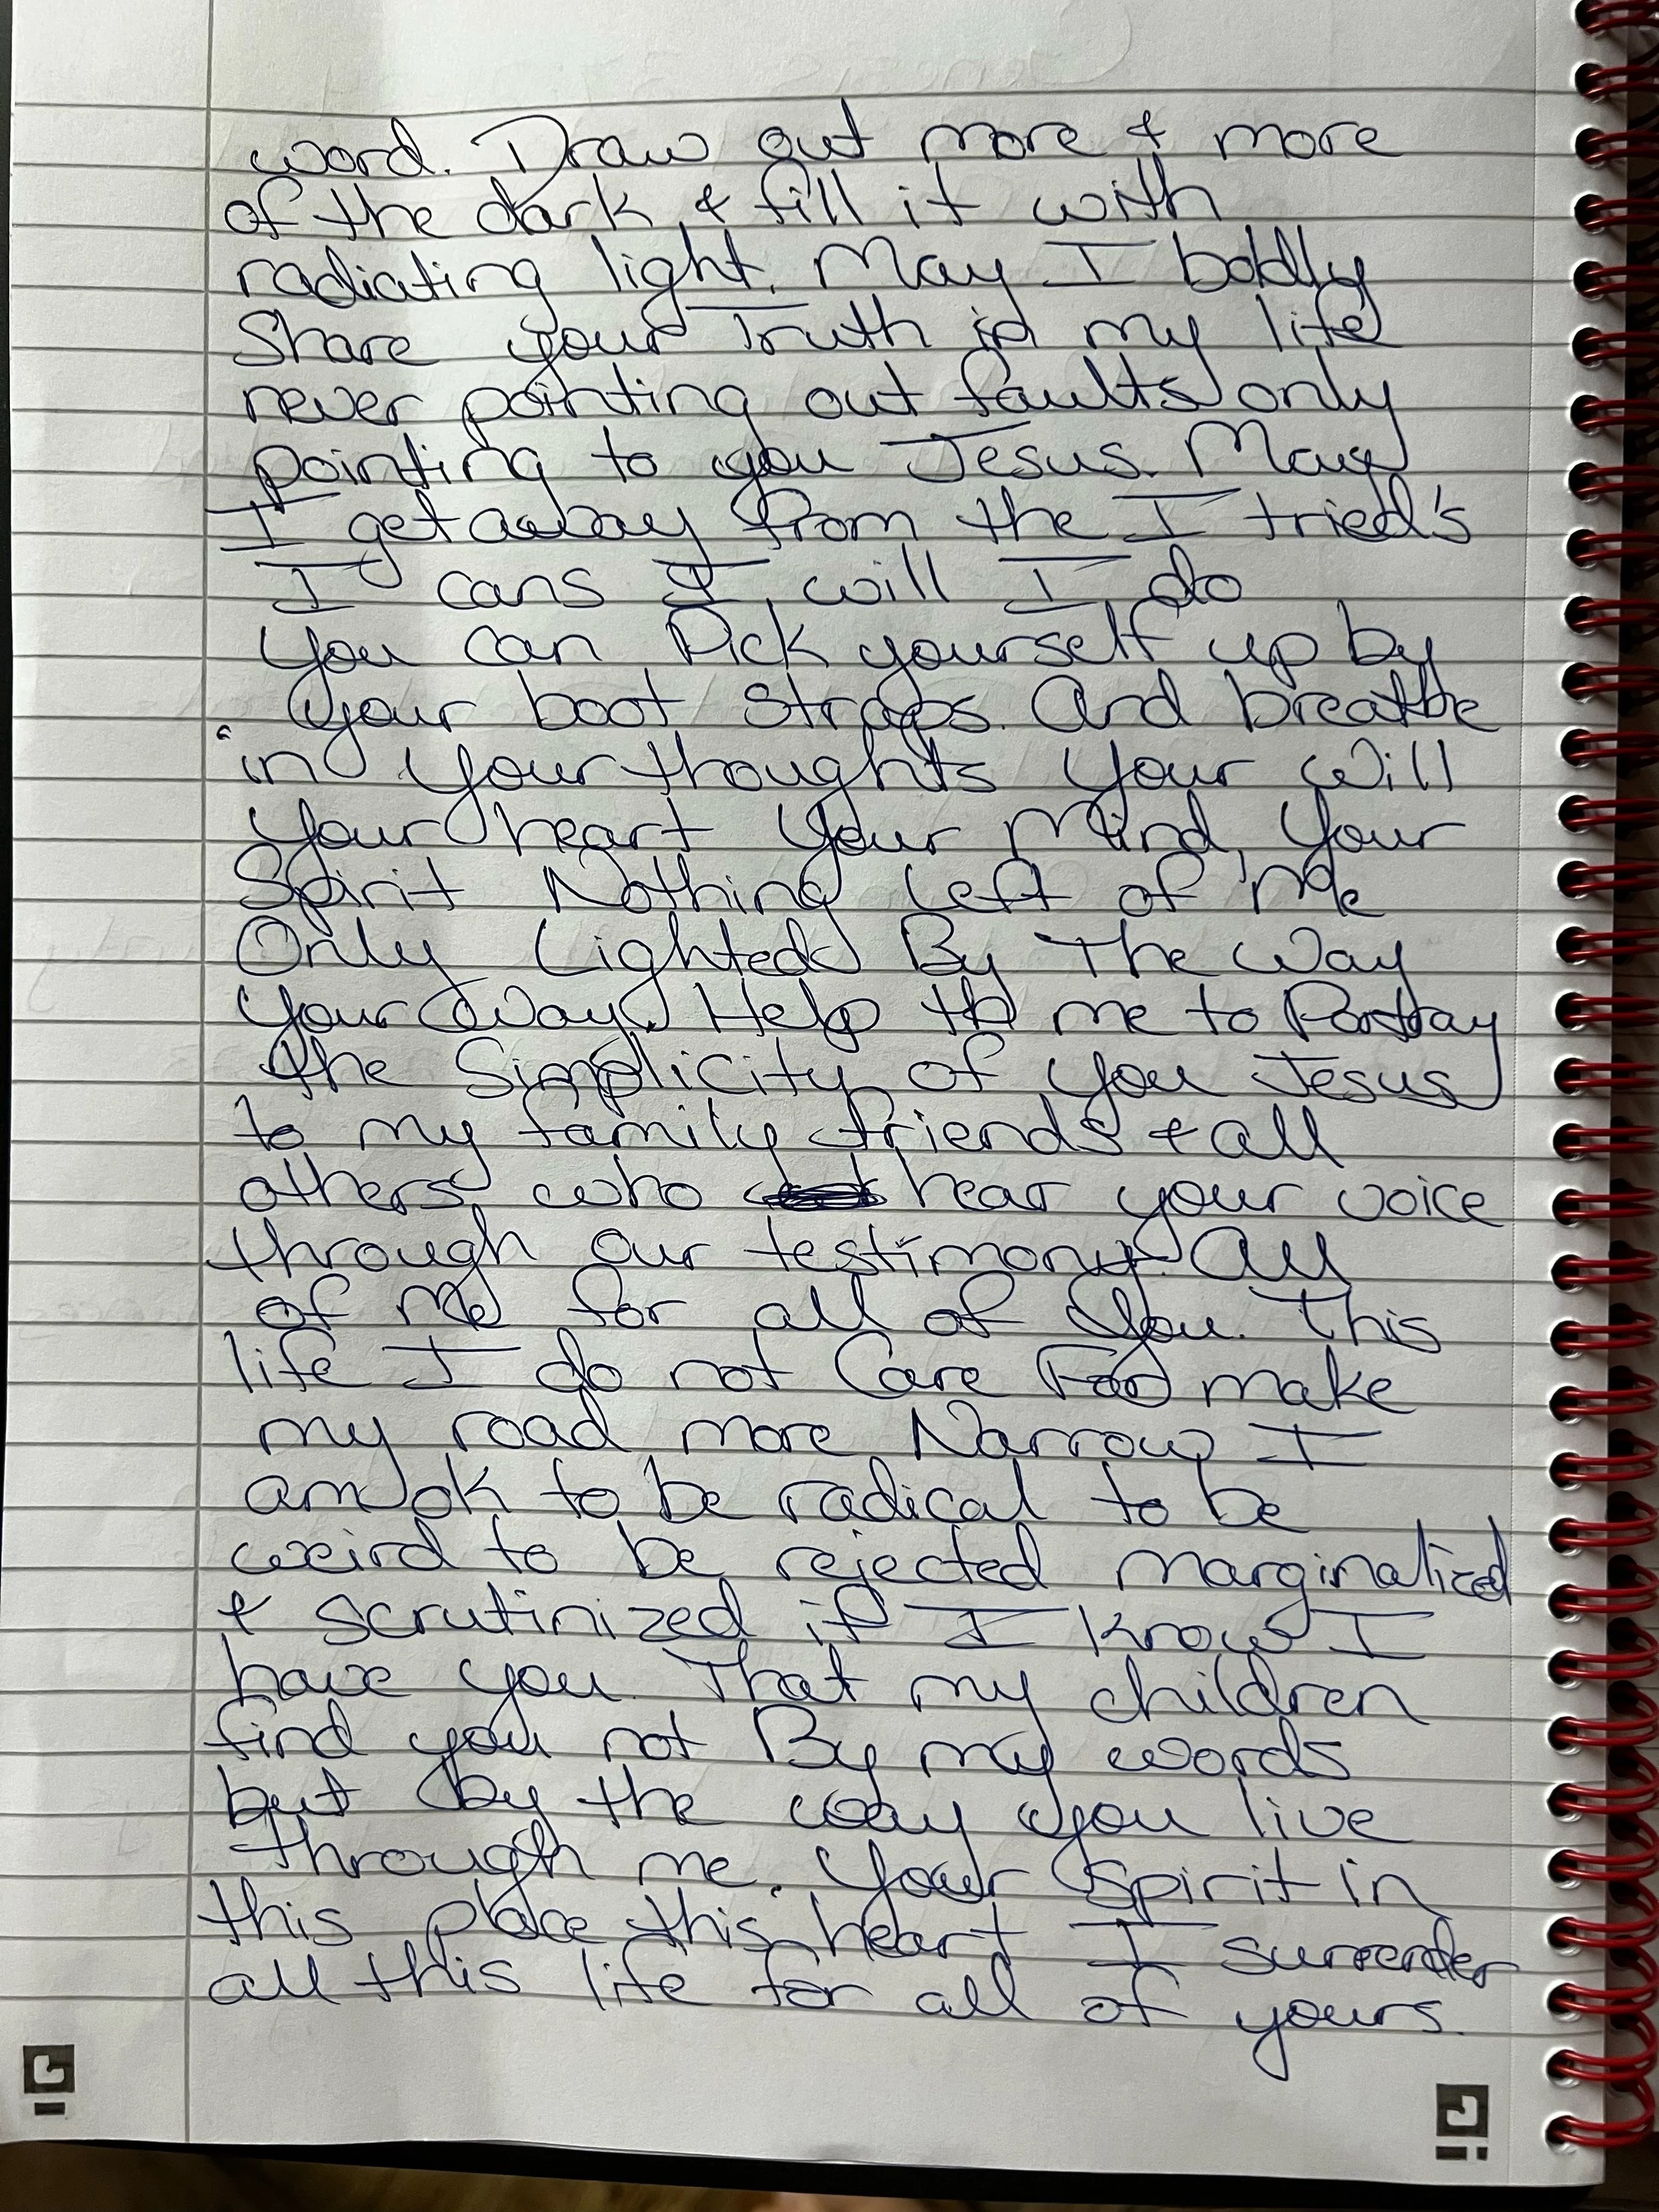 word. Draw out more & more
of the dark & fill it with
radiating light. May I boldly
Share your Truth in my life
never pointing out faults only
pointing to you Jesus. May
I get away from the I tried's
I cans I will I do
You can Pick yourself up by
your boot straps. And breathe
in your thoughts Your Will
Your heart Your Mind, Your
Spirit Nothing Left of Me
Only Lighted By The Way
Your Way. Help me to Portray
the Simplicity of You Jesus
to my family friends & all
others who hear your voice
through our testimony. All
of Me for all of You. This
life I do not Care For make
my road more Narrow I
am ok to be radical to be
weird to be rejected marginalized
& scrutinized if I know I
have you. That my children
find you not By my words
but by the way you live
through me. Your Spirit in
this place this heart I surrender
all this life for all of yours.